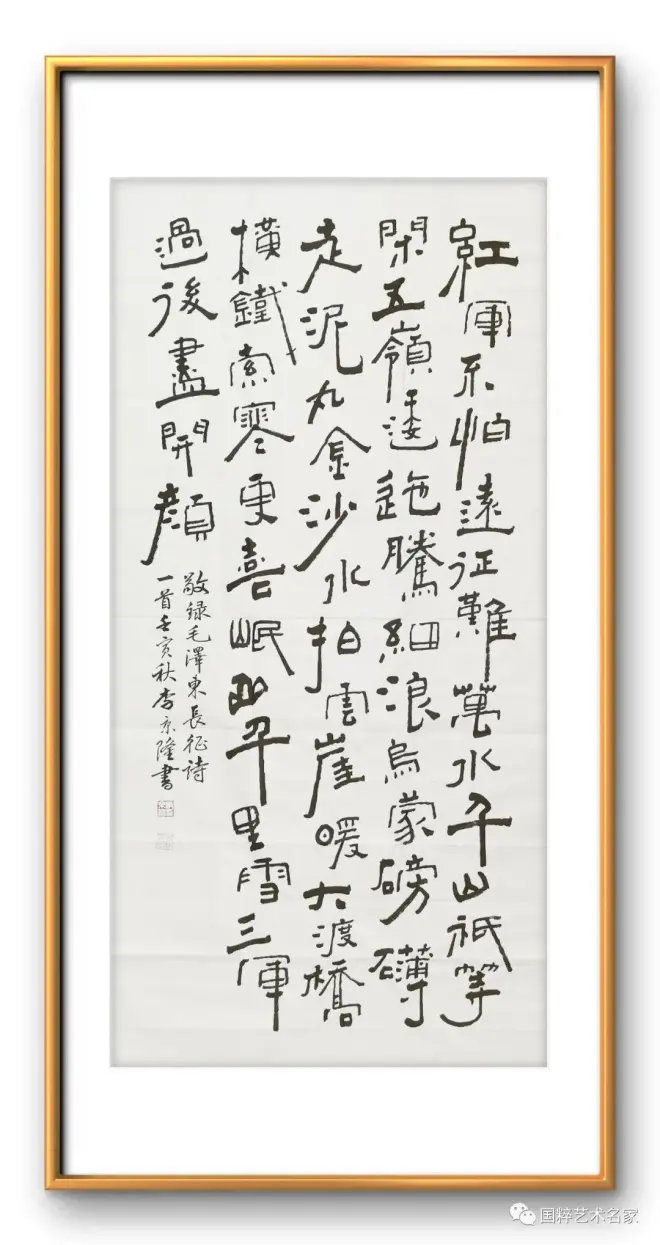 紅軍不怕遠征難萬水千山祇等
閑五嶺逶迤騰細浪烏蒙磅礴
走泥丸金沙水拍雲崖暖大渡橋
横鐵索寒更喜岷山千里雪三軍
過後盡開顔
敬録毛澤東長征詩
一首壬寅秋李京隆書
国粹艺术名家